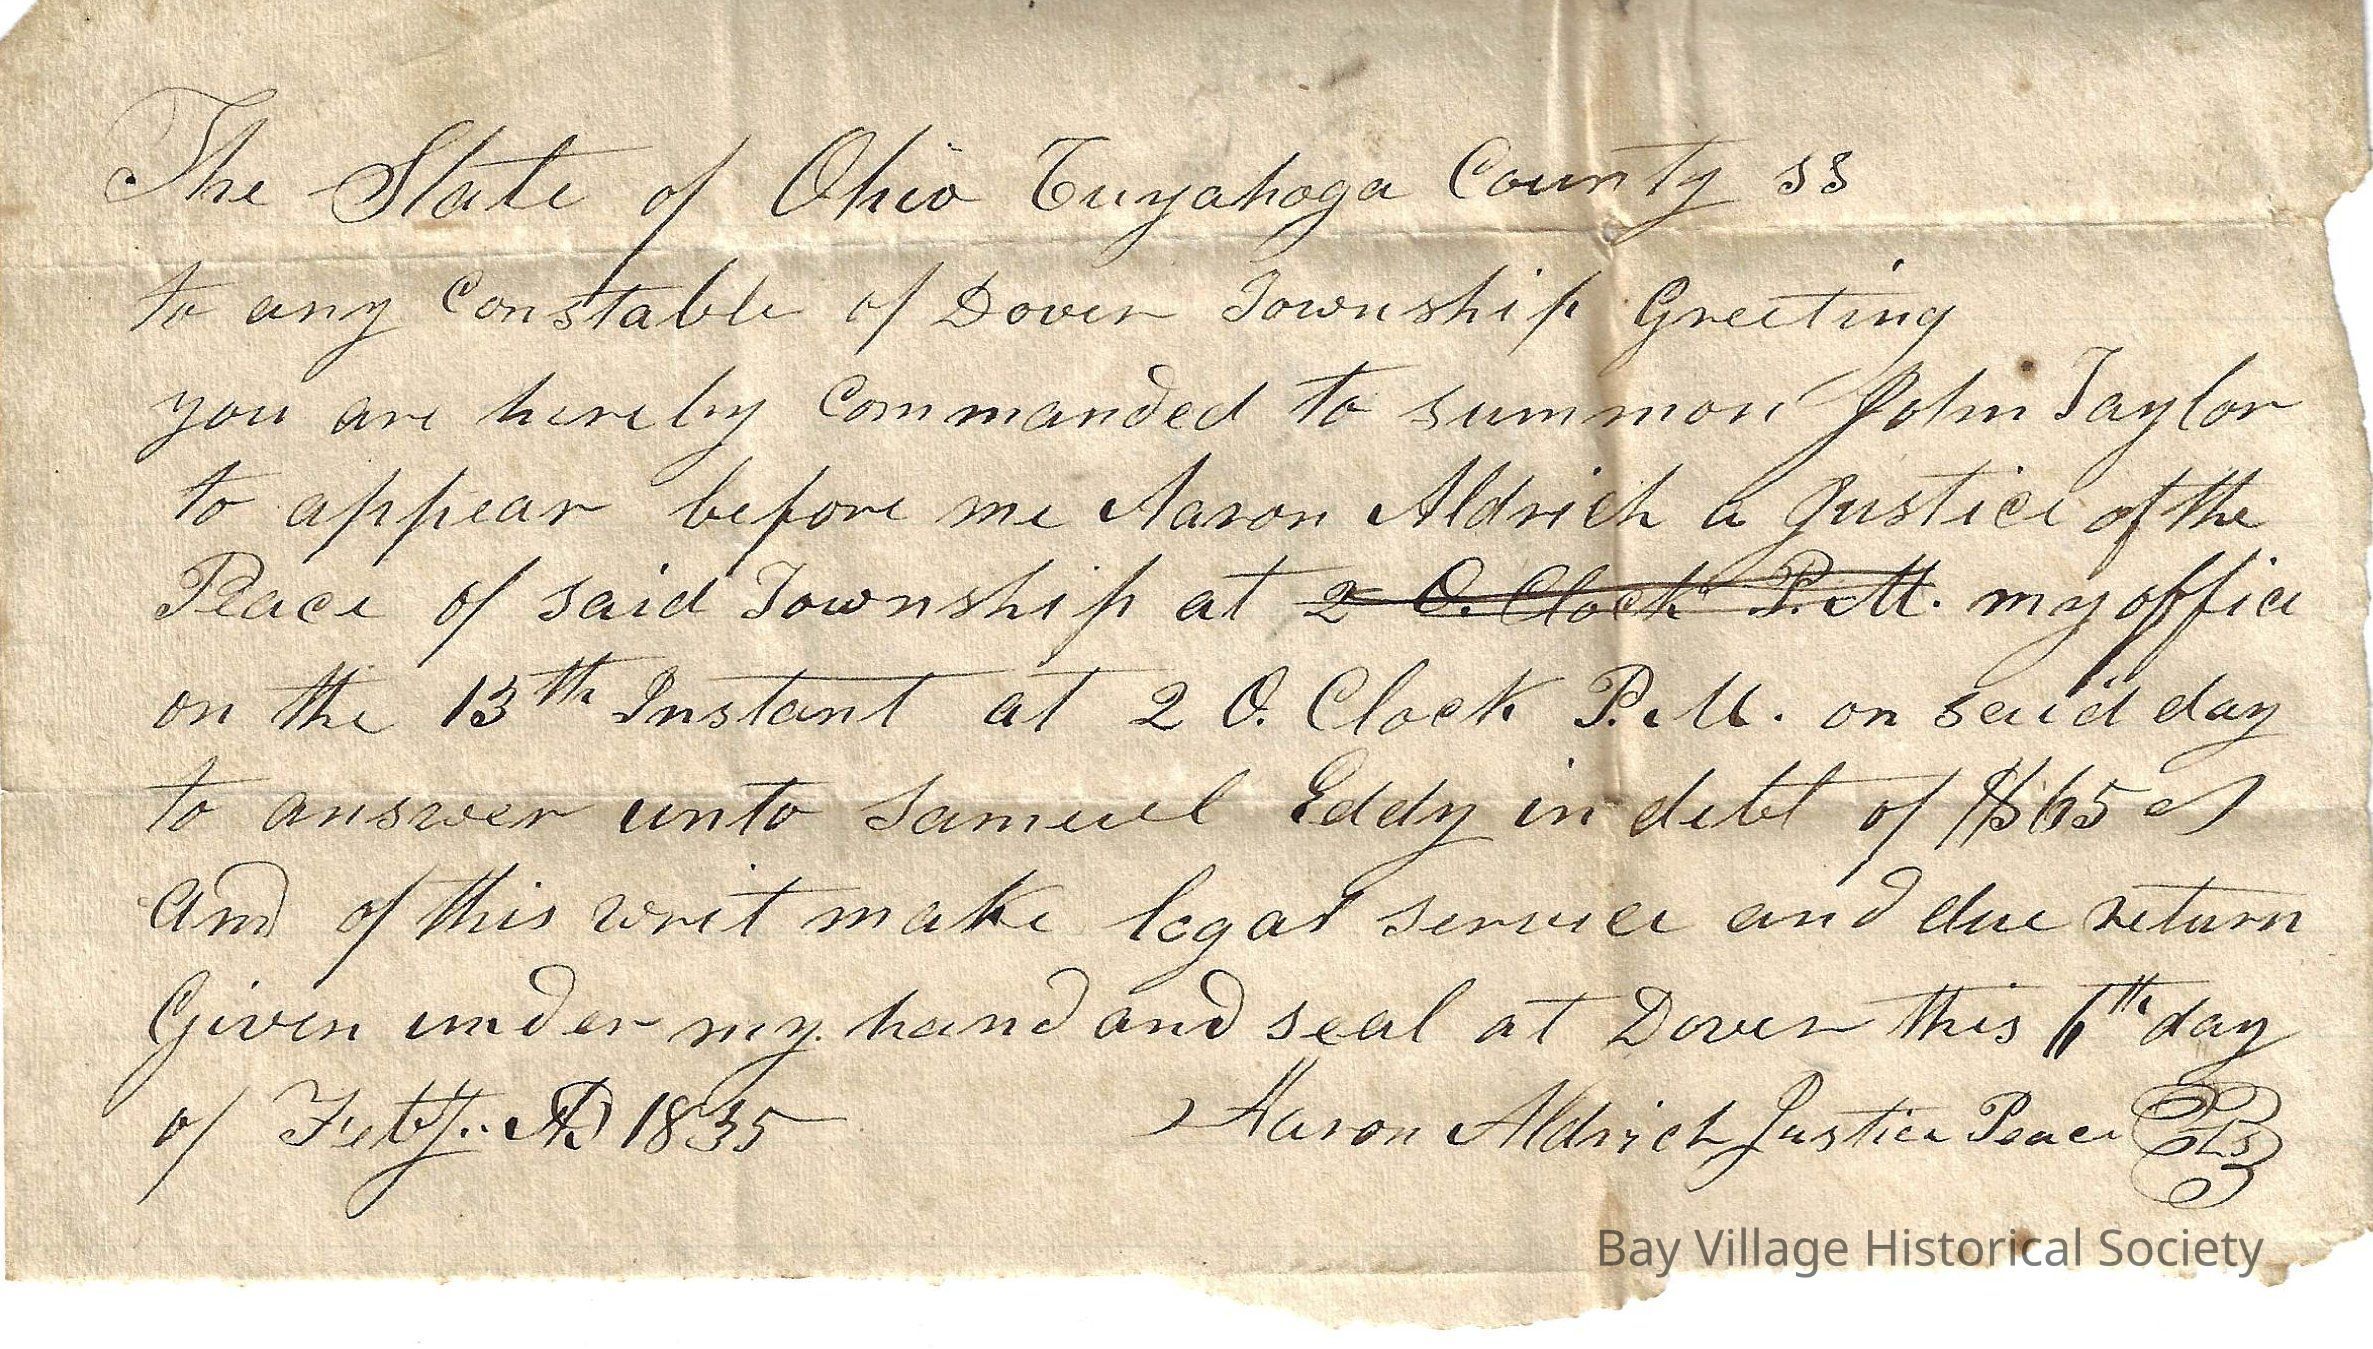 The State of Ohio Cuyahoga County ss
to any Constable of Dover Township Greeting
you are hereby Commanded to summon John Taylor
to appear before me Aaron Aldrich a Justice of the
Peace of said Township at 2 O. Clock P. M. my office
on the 13th Instant at 2 O. Clock P. M. on said day
to answer unto Samuel Eddy in debt of $65
And of this writ make legal service and due return
Given under my hand and seal at Dover this 6th day
of Feby. AD 1835
Aaron Aldrich Justice Peace LS
Bay Village Historical Society